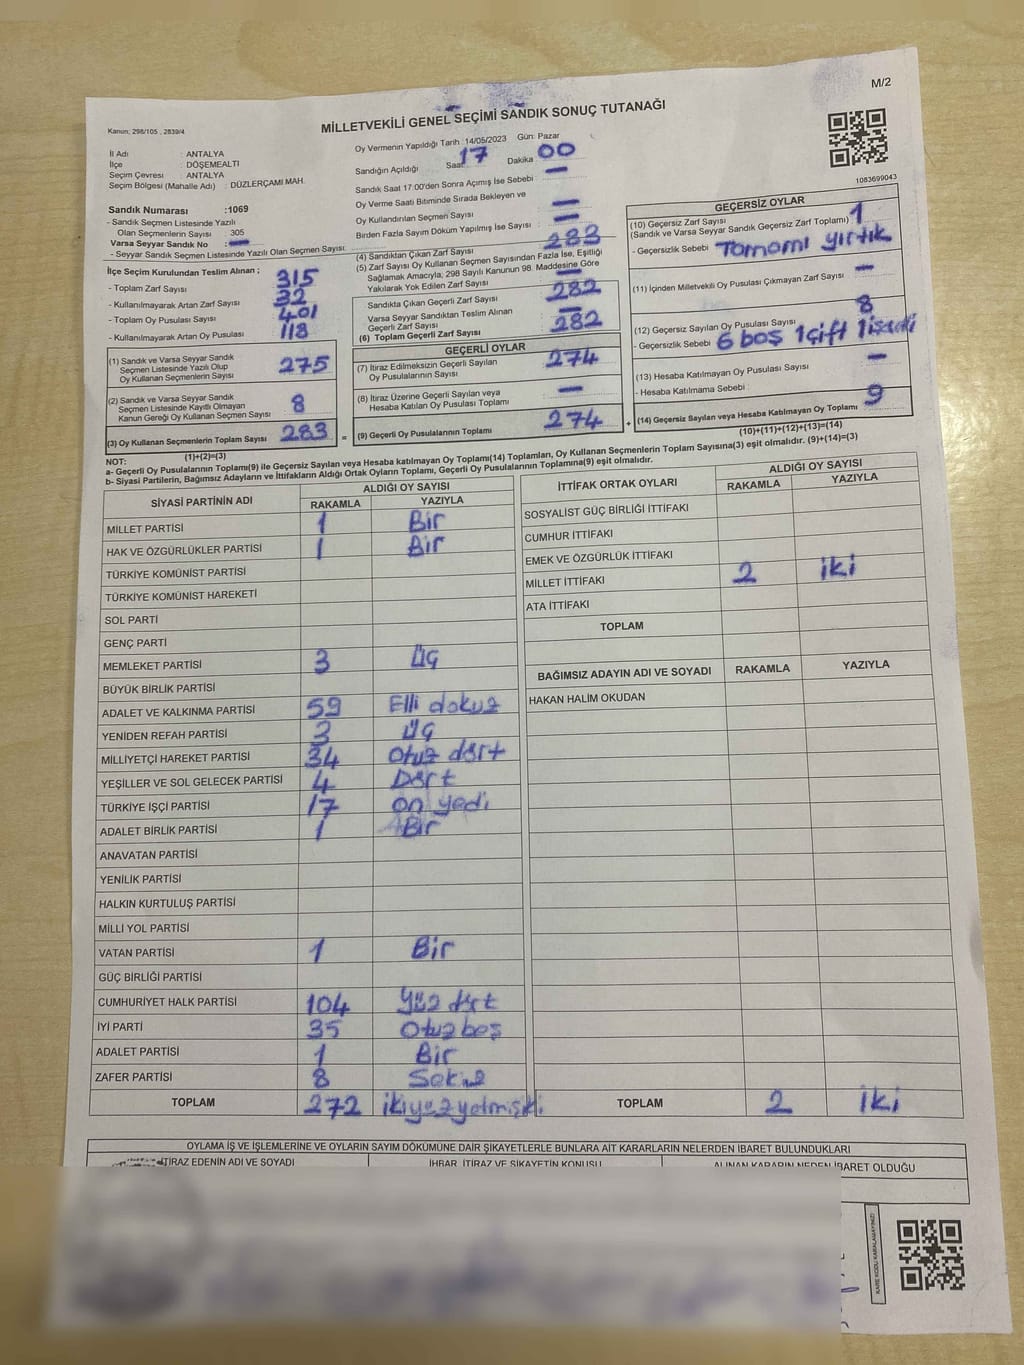 M/2
Kanun; 298/105 , 2839/4
MİLLETVEKİLİ GENEL SEÇİMİ SANDIK SONUÇ TUTANAĞI
İl Adı : ANTALYA
İlçe : DÖŞEMEALTI
Seçim Çevresi : ANTALYA
Seçim Bölgesi (Mahalle Adı) : DÜZLERÇAMI MAH.
Sandık Numarası :1069
- Sandık Seçmen Listesinde Yazılı
Olan Seçmenlerin Sayısı : 305
Varsa Seyyar Sandık No : —
- Seyyar Sandık Seçmen Listesinde Yazılı Olan Seçmen Sayısı:
Oy Vermenin Yapıldığı Tarih :14/05/2023 Gün: Pazar
Sandığın Açıldığı Saat 17 Dakika 00
Sandık Saat 17:00'den Sonra Açımış İse Sebebi : —
Oy Verme Saati Bitiminde Sırada Bekleyen ve
Oy Kullandırılan Seçmen Sayısı : —
Birden Fazla Sayım Döküm Yapılmış İse Sayısı : —
1083699043
İlçe Seçim Kurulundan Teslim Alınan ;
- Toplam Zarf Sayısı : 315
- Kullanılmayarak Artan Zarf Sayısı : 32
- Toplam Oy Pusulası Sayısı : 401
- Kullanılmayarak Artan Oy Pusulası : 118
(1) Sandık ve Varsa Seyyar Sandık
Seçmen Listesinde Yazılı Olup
Oy Kullanan Seçmenlerin Sayısı : 275
(2) Sandık ve Varsa Seyyar Sandık
Seçmen Listesinde Kayıtlı Olmayan
Kanun Gereği Oy Kullanan Seçmen Sayısı : 8
(3) Oy Kullanan Seçmenlerin Toplam Sayısı : 283 =
(1)+(2)=(3)
(4) Sandıktan Çıkan Zarf Sayısı : 283
(5) Zarf Sayısı Oy Kullanan Seçmen Sayısından Fazla İse, Eşitliği
Sağlamak Amacıyla; 298 Sayılı Kanunun 98. Maddesine Göre
Yakılarak Yok Edilen Zarf Sayısı : —
Sandıkta Çıkan Geçerli Zarf Sayısı : 282
Varsa Seyyar Sandıktan Teslim Alınan
Geçerli Zarf Sayısı : —
(6) Toplam Geçerli Zarf Sayısı : 282
GEÇERLİ OYLAR
(7) İtiraz Edilmeksizin Geçerli Sayılan
Oy Pusulalarının Sayısı : 274
(8) İtiraz Üzerine Geçerli Sayılan veya
Hesaba Katılan Oy Pusulası Toplamı : —
(9) Geçerli Oy Pusulalarının Toplamı : 274 +
GEÇERSİZ OYLAR
(10) Geçersiz Zarf Sayısı
(Sandık ve Varsa Seyyar Sandık Geçersiz Zarf Toplamı) : 1
- Geçersizlik Sebebi : Tamamı yırtık
(11) İçinden Milletvekili Oy Pusulası Çıkmayan Zarf Sayısı : —
(12) Geçersiz Sayılan Oy Pusulası Sayısı : 8
- Geçersizlik Sebebi : 6 boş 1 çift 1
(13) Hesaba Katılmayan Oy Pusulası Sayısı : —
- Hesaba Katılmama Sebebi :
(14) Geçersiz Sayılan veya Hesaba Katılmayan Oy Toplamı : 9
(10)+(11)+(12)+(13)=(14)
NOT:
a- Geçerli Oy Pusulalarının Toplamı(9) ile Geçersiz Sayılan veya Hesaba katılmayan Oy Toplamı(14) Toplamları, Oy Kullanan Seçmenlerin Toplam Sayısına(3) eşit olmalıdır. (9)+(14)=(3)
b- Siyasi Partilerin, Bağımsız Adayların ve İttifakların Aldığı Ortak Oyların Toplamı, Geçerli Oy Pusulalarının Toplamına(9) eşit olmalıdır.
SİYASİ PARTİNİN ADI ALDIĞI OY SAYISI
RAKAMLA YAZIYLA
MİLLET PARTİSİ 1 Bir
HAK VE ÖZGÜRLÜKLER PARTİSİ 1 Bir
TÜRKİYE KOMÜNİST PARTİSİ
TÜRKİYE KOMÜNİST HAREKETİ
SOL PARTİ
GENÇ PARTİ
MEMLEKET PARTİSİ 3 üç
BÜYÜK BİRLİK PARTİSİ
ADALET VE KALKINMA PARTİSİ 59 Elli dokuz
YENİDEN REFAH PARTİSİ 3 üç
MİLLİYETÇİ HAREKET PARTİSİ 34 Otuz dört
YEŞİLLER VE SOL GELECEK PARTİSİ 4 Dört
TÜRKİYE İŞÇİ PARTİSİ 17 on yedi
ADALET BİRLİK PARTİSİ 1 Bir
ANAVATAN PARTİSİ
YENİLİK PARTİSİ
HALKIN KURTULUŞ PARTİSİ
MİLLİ YOL PARTİSİ
VATAN PARTİSİ 1 Bir
GÜÇ BİRLİĞİ PARTİSİ
CUMHURİYET HALK PARTİSİ 104 Yüz dört
İYİ PARTİ 35 Otuz beş
ADALET PARTİSİ 1 Bir
ZAFER PARTİSİ 8 Sekiz
TOPLAM 272 ikiyüz yetmişiki
İTTİFAK ORTAK OYLARI ALDIĞI OY SAYISI
RAKAMLA YAZIYLA
SOSYALİST GÜÇ BİRLİĞİ İTTİFAKI
CUMHUR İTTİFAKI
EMEK VE ÖZGÜRLÜK İTTİFAKI
MİLLET İTTİFAKI 2 iki
ATA İTTİFAKI
TOPLAM
BAĞIMSIZ ADAYIN ADI VE SOYADI RAKAMLA YAZIYLA
HAKAN HALİM OKUDAN
TOPLAM 2 iki
OYLAMA İŞ VE İŞLEMLERİNE VE OYLARIN SAYIM DÖKÜMÜNE DAİR ŞİKAYETLERLE BUNLARA AİT KARARLARIN NELERDEN İBARET BULUNDUKLARI
İTİRAZ EDENİN ADI VE SOYADI İHBAR, İTİRAZ VE ŞİKAYETİN KONUSU ALINAN KARARIN NEDEN İBARET OLDUĞU
KARE KODU KARALAMAYINIZ!